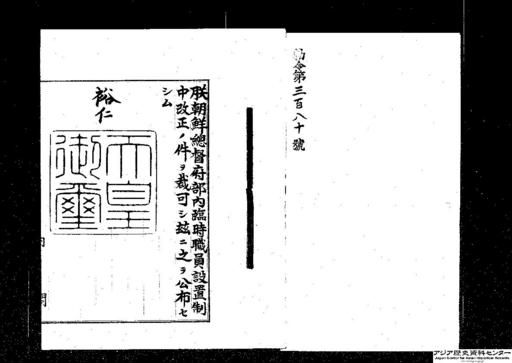 勅令第三百八十號
朕朝鮮總督府部內臨時職員設置制
中改正ノ件ヲ裁可シ茲ニ之ヲ公布セ
シム
裕仁
天皇
御璽
アジア歴史資料センター
Japan Center for Asian Historical Records